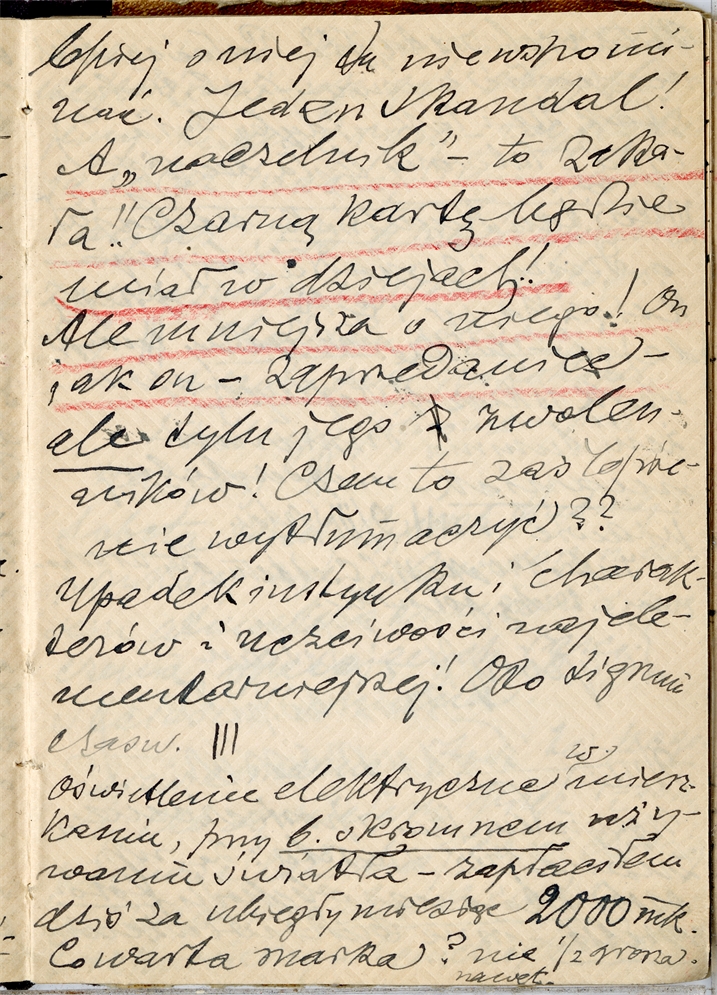 lepiej o niej tu niewspomi-
nać. Jeden skandal!
A „naczelnik” – to zaka-
ła!! Czarną kartę będzie
miał w dziejach!
Ale mniejsza o niego! On
jak on – zaprzedaniec –
ale tylu jego zwolen-
ników! Czem to zaślepie-
nie wytłumaczyć??
Upadek instynktu i charak-
terów i uczciwości najele-
mentarniejszej! Oto signum
czasów. |||
Oświetlenie elektryczne w miesz-
kaniu, przy b. skromnem uży-
waniu światła – zapłaciłem
dziś za ubiegły miesiąc 2000 mk.
Co warta marka? nie 1/2 grosza.
nawet.